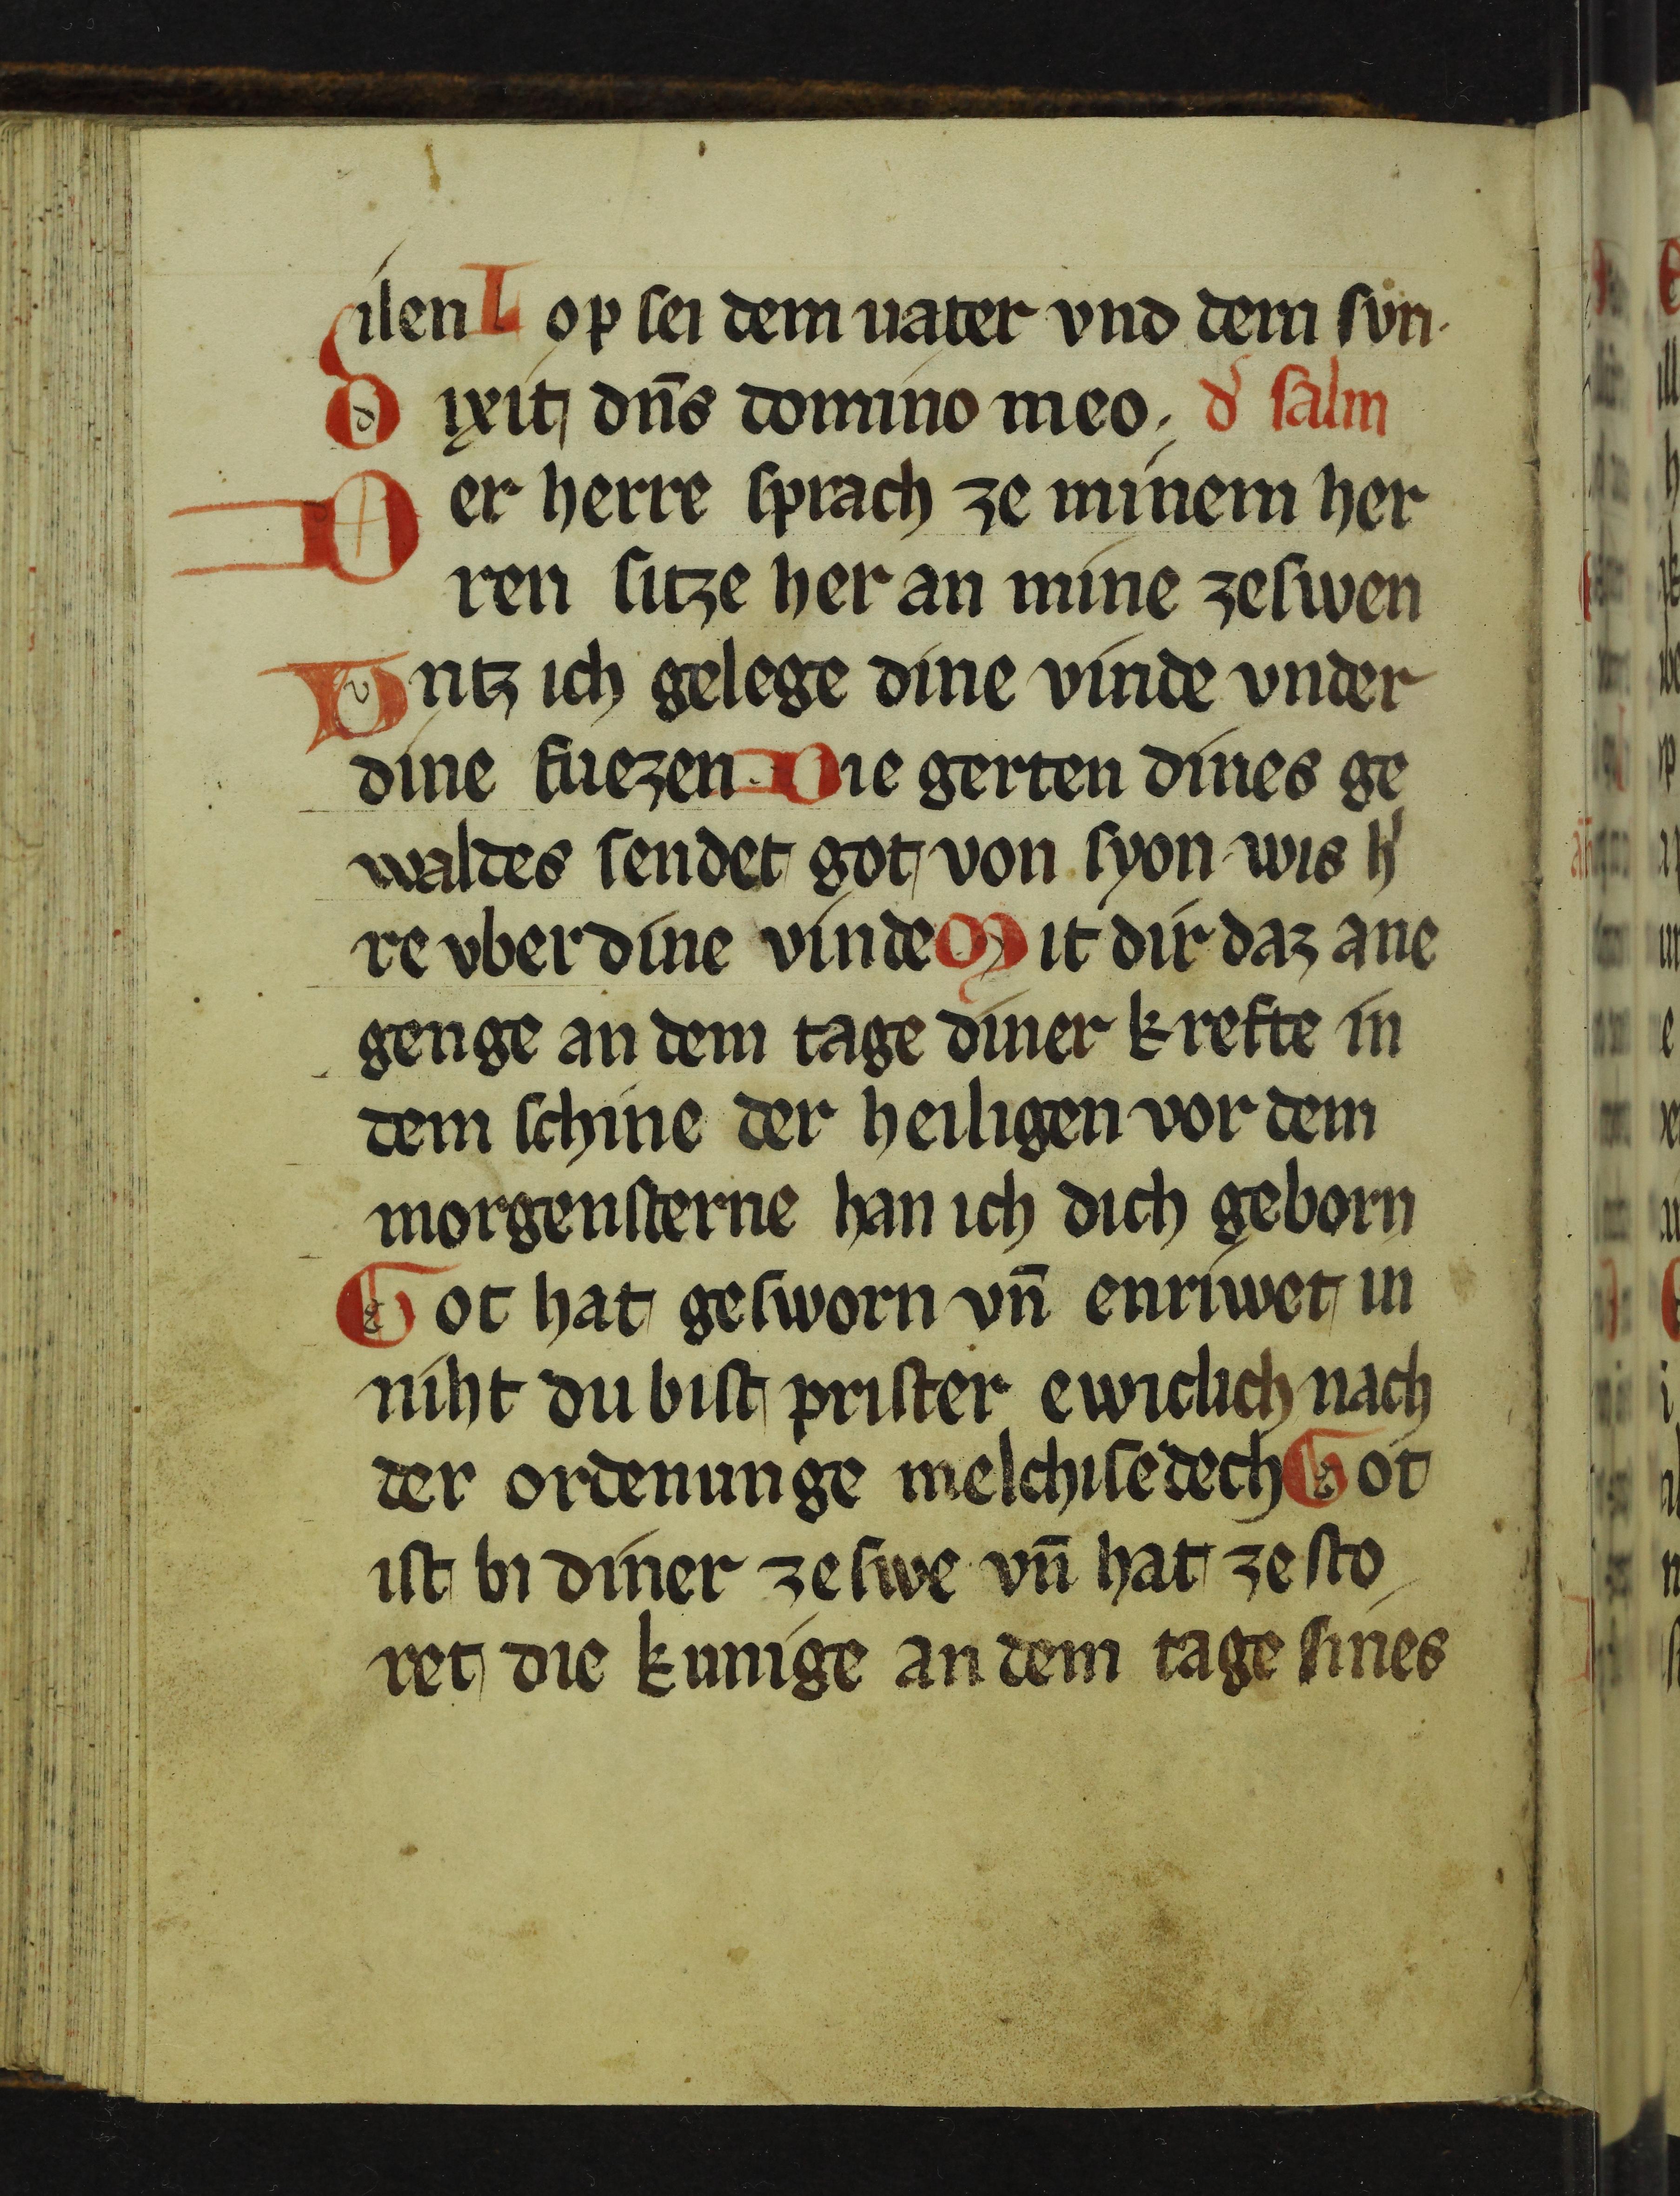 ilen Lop sei dem uater vnd dem sv̊n.
Dixit dn̄s domino meo. d͛ salm
Der herre sprach ze minem her
ren sitze her an mine zeswen
Vntz ich gelege dine vinde vnder
dine fuezen. Die gerten dines ge
waldes sendet got von syon. wis h͛
re vber dine vinde Mit dir daz ane
genge an dem tage diner krefte in
dem schine der heiligen vor dem
morgensterne han ich dich geborn
Got hat gesworn vn̄ enriwet in
niht du bist prister ewiclich nach
der ordenunge melchisedech Got
ist bi diner zeswe vn̄ hat zesto
ret die kunige an dem tage sines